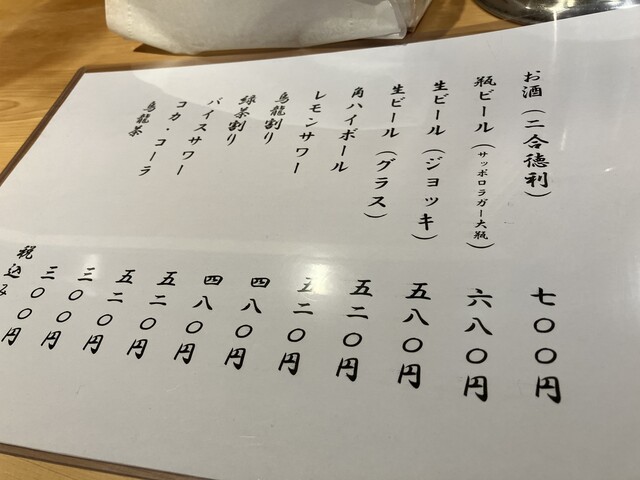 お酒(二合徳利) 七〇〇円
瓶ビール(サッポロラガー大瓶) 六八〇円
生ビール(ジョッキ) 五八〇円
生ビール(グラス) 五二〇円
角ハイボール 五二〇円
レモンサワー 四八〇円
烏龍割り 四八〇円
緑茶割り 五二〇円
バイスサワー 五二〇円
コカ・コーラ 三〇〇円
烏龍茶 三〇〇円
税込み